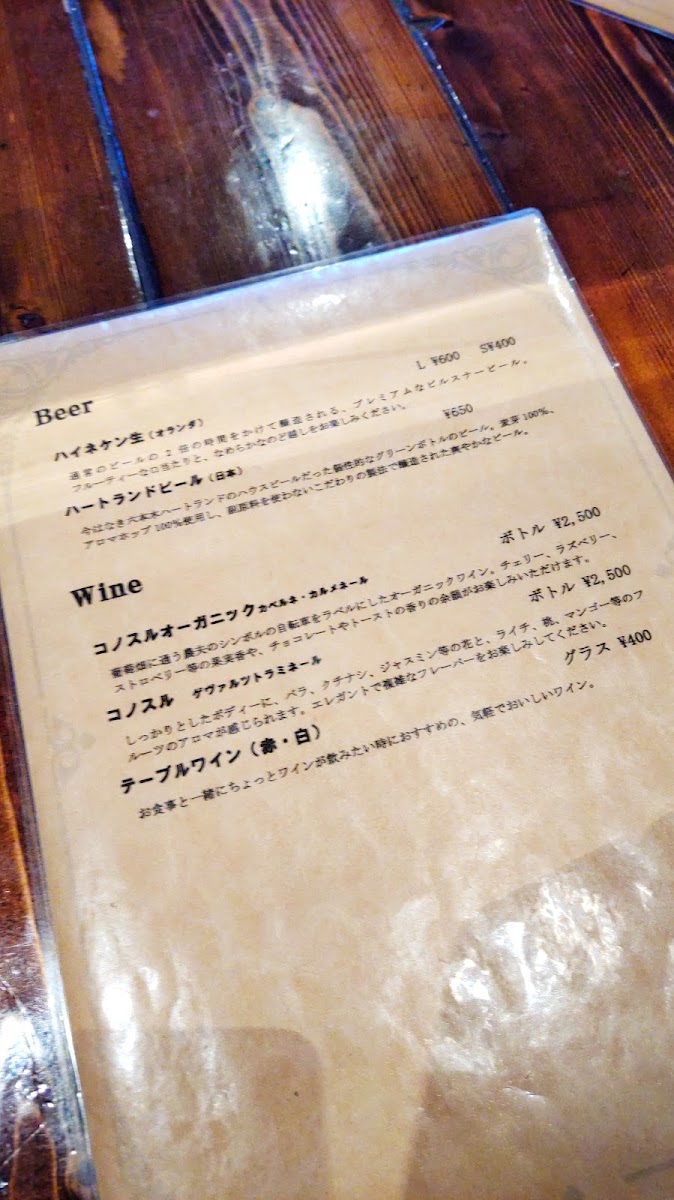 Beer
ハイネケン生(オランダ) L ¥600 S¥400
通常のビールの2倍の時間をかけて醸造される、プレミアムなピルスナービール。
フルーティーな口当たりと、なめらかなのど越しをお楽しみください。
ハートランドビール(日本) ¥650
今はなき六本木ハートランドのハウスビールだった個性的なグリーンボトルのビール。麦芽100%、
アロマホップ100%使用し、副原料を使わないこだわりの製法で醸造された爽やかなビール。
Wine
コノスルオーガニックカベルネ・カルメネール ボトル ¥2,500
葡萄畑に通う農夫のシンボルの自転車をラベルにしたオーガニックワイン。チェリー、ラズベリー、
ストロベリー等の果実香や、チョコレートやトーストの香りの余韻がお楽しみいただけます。
コノスル ゲヴァルツトラミネール ボトル ¥2,500
しっかりとしたボディーに、バラ、クチナシ、ジャスミン等の花と、ライチ、桃、マンゴー等のフ
ルーツのアロマが感じられます。エレガントで複雑なフレーバーをお楽しみしてください。
テーブルワイン(赤・白) グラス ¥400
お食事と一緒にちょっとワインが飲みたい時におすすめの、気軽でおいしいワイン。